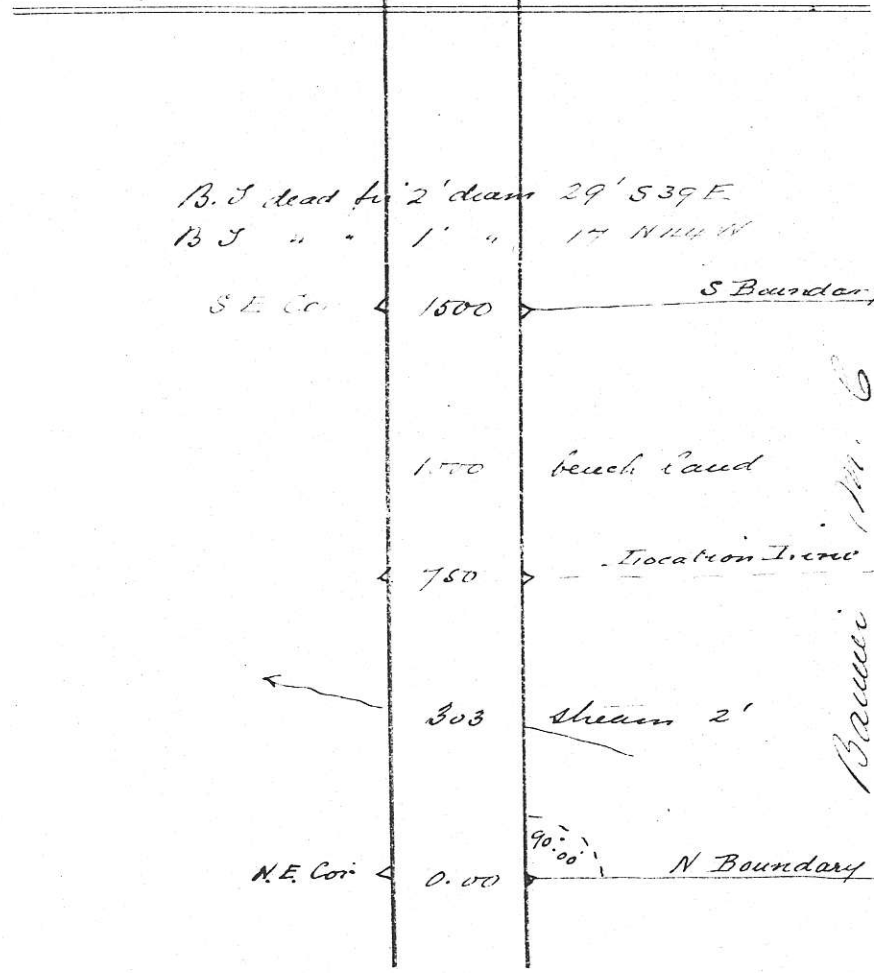 B.T dead fir 2' diam 29' S 39 E
B T " " 1' " 17 N W
S E Cor 1500 S Boundary
bench land
750 Location Line
303 stream 2'
90.00
N.E. Cor 0.00 N Boundary
Banner M. C